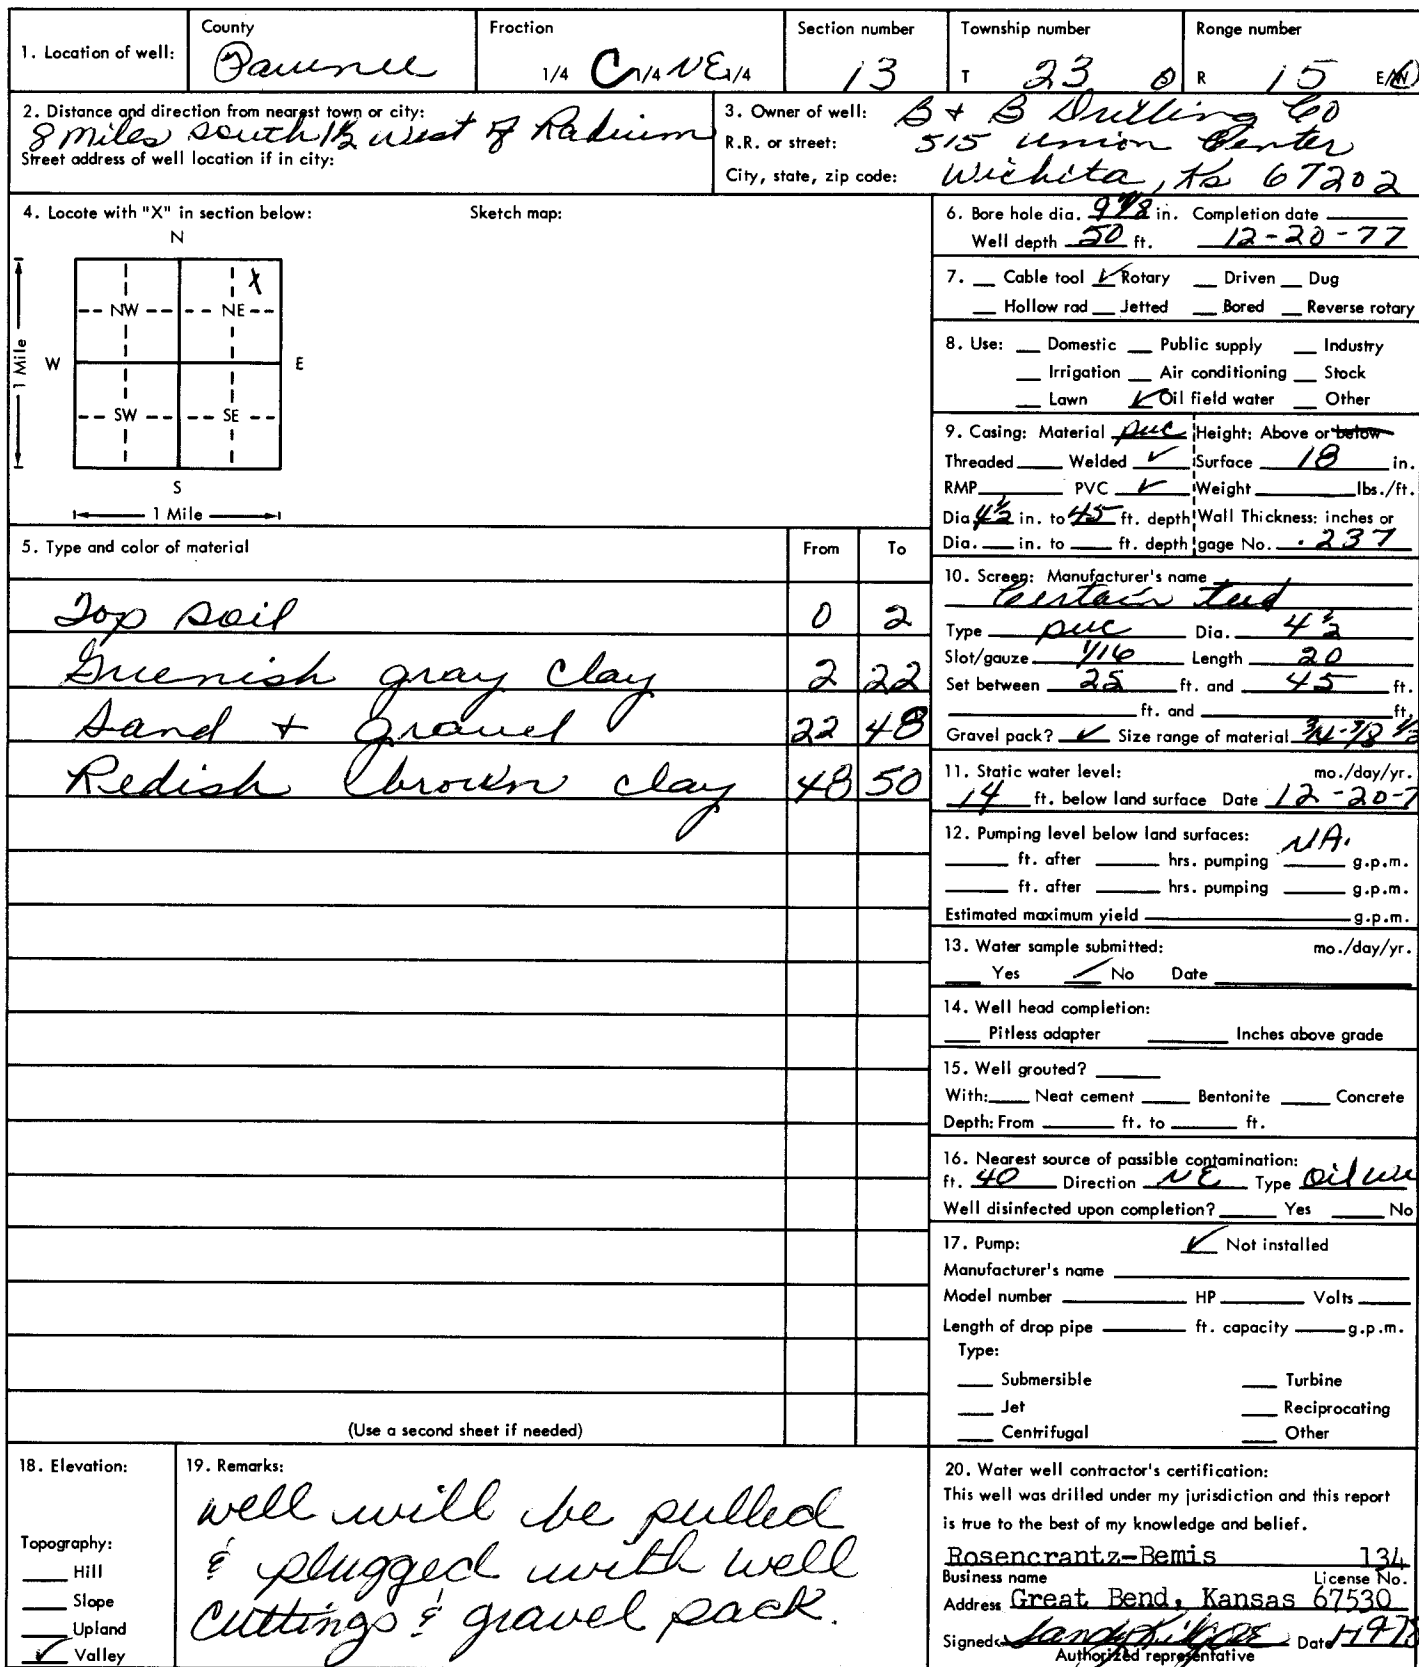 1. Location of well: County Pawnee Froction 1/4 C 1/4 NE 1/4 Section number 13 Township number T 23 S Ronge number R 15 E/W
2. Distance and direction from nearest town or city: 8 miles south 1½ west of Radium
Street address of well location if in city:
3. Owner of well: B + B Drilling Co
R.R. or street: 515 Union Center
City, state, zip code: Wichita, Ks 67202
4. Locote with "X" in section below: Sketch map:
N
X
NW NE
W E
1 Mile
SW SE
S
1 Mile
5. Type and color of material From To
Top soil 0 2
Greenish gray clay 2 22
Sand + gravel 22 48
Redish brown clay 48 50
(Use a second sheet if needed)
6. Bore hole dia. 9 7/8 in. Completion date
Well depth 50 ft. 12-20-77
7. Cable tool ✓ Rotary Driven Dug
Hollow rad Jetted Bored Reverse rotary
8. Use: Domestic Public supply Industry
Irrigation Air conditioning Stock
Lawn ✓ Oil field water Other
9. Casing: Material pvc Height: Above or below
Threaded Welded ✓ Surface 18 in.
RMP PVC ✓ Weight lbs./ft.
Dia 4½ in. to 45 ft. depth Wall Thickness: inches or
Dia. in. to ft. depth gage No. .237
10. Screen: Manufacturer's name
Certain teed
Type pvc Dia. 4½
Slot/gauze 1/16 Length 20
Set between 25 ft. and 45 ft.
ft. and ft.
Gravel pack? ✓ Size range of material
11. Static water level: mo./day/yr.
14 ft. below land surface Date 12-20-7
12. Pumping level below land surfaces: NA.
ft. after hrs. pumping g.p.m.
ft. after hrs. pumping g.p.m.
Estimated maximum yield g.p.m.
13. Water sample submitted: mo./day/yr.
Yes ✓ No Date
14. Well head completion:
Pitless adapter Inches above grade
15. Well grouted?
With: Neat cement Bentonite Concrete
Depth: From ft. to ft.
16. Nearest source of possible contamination:
ft. 40 Direction NE Type Oil we
Well disinfected upon completion? Yes No
17. Pump: ✓ Not installed
Manufacturer's name
Model number HP Volts
Length of drop pipe ft. capacity g.p.m.
Type:
Submersible Turbine
Jet Reciprocating
Centrifugal Other
18. Elevation:
Topography:
Hill
Slope
Upland
✓ Valley
19. Remarks:
well will be pulled
& plugged with well
cuttings & gravel pack.
20. Water well contractor's certification:
This well was drilled under my jurisdiction and this report
is true to the best of my knowledge and belief.
Rosencrantz-Bemis 134
Business name License No.
Address Great Bend, Kansas 67530
Signed Date 1-19-78
Authorized representative